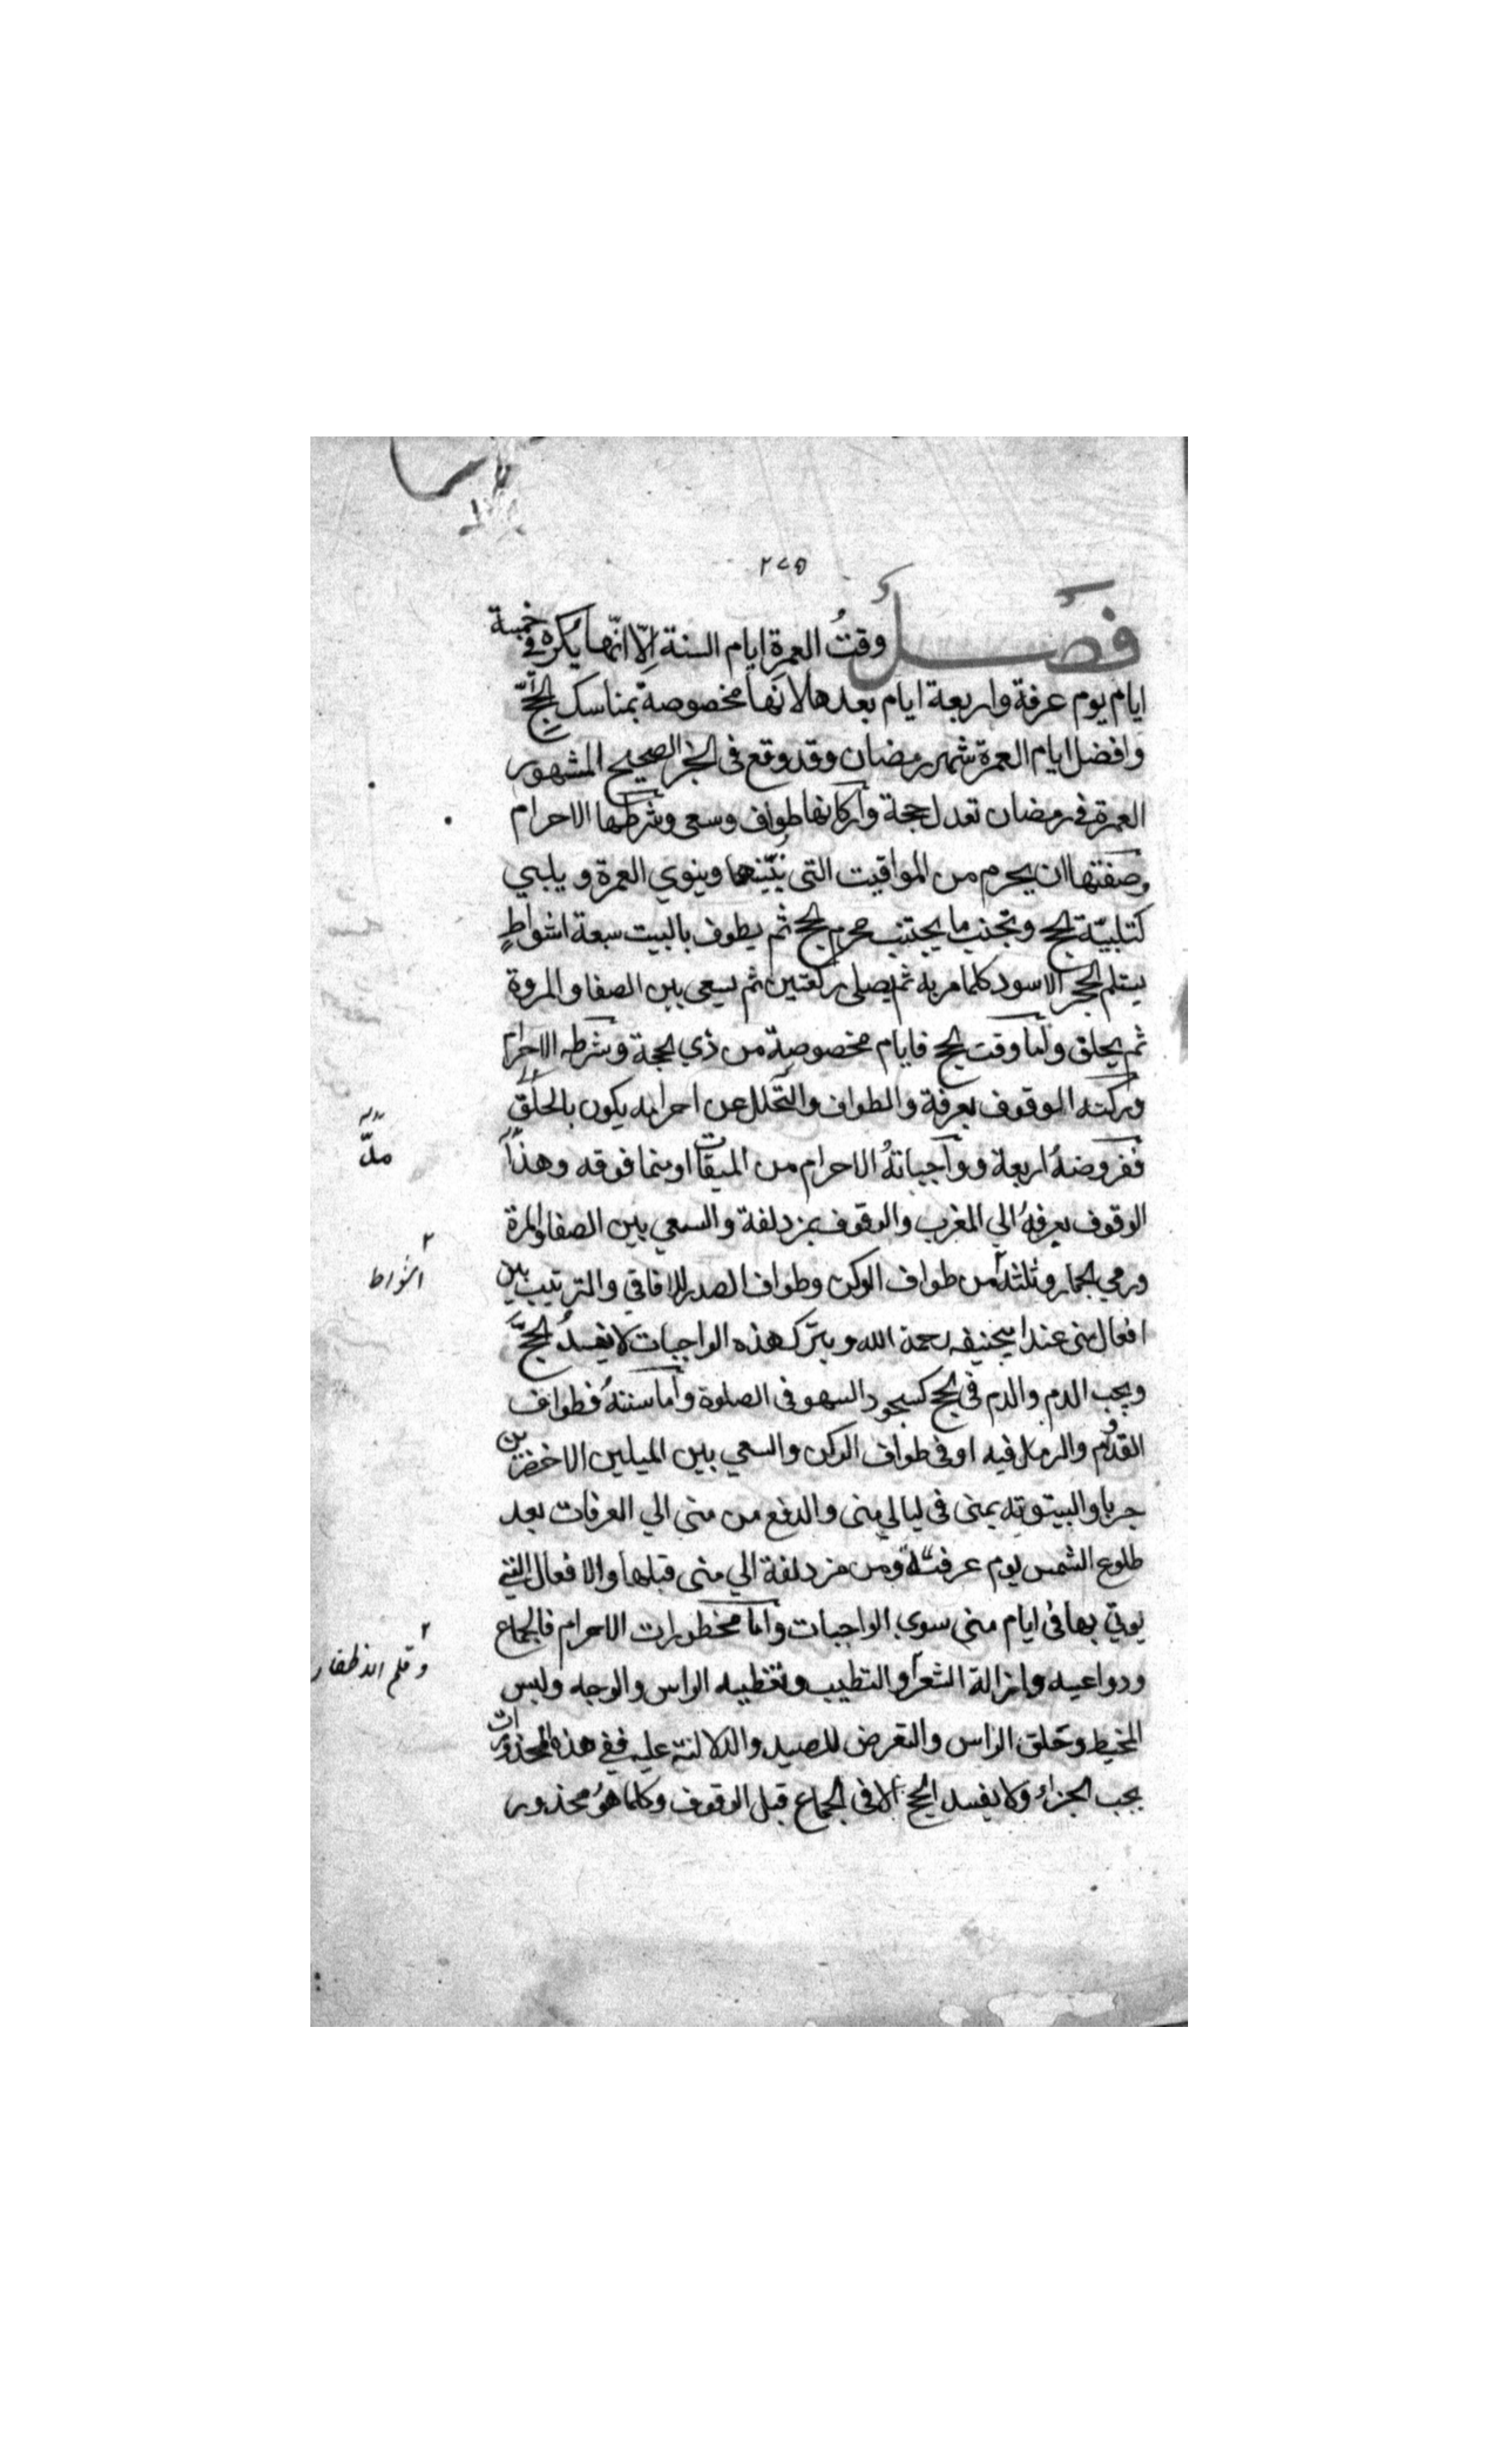 ٢٧٥
فصل وقتُ العمرة ايام السنة اِلّا انّها يُكره في خمسة
ايام يوم عرفة واربعة ايام بعدها لانها مخصوصة بمناسك الحجّ
وافضل ايام العمرة شهر رمضان وقد وقع فى الخبر الصحيح المشهور
العمرة فى رمضان تعدل حجة واركانها طواف وسعى وشرطها الاحرام
وصفتها ان يحرم من المواقيت التى نبّينها وينوي العمرة ويلبي
كتلبيّة الحج وتجنب ما يجتنب محرم الحج ثم يطوف بالبيت سبعة اشواطٍ
يستلم الحجر الاسود كلما مر به ثم يصلى ركعتين ثم يسعى بين الصفا والمروة
ثم يحلق واما وقت الحج فايام مخصوصة من ذي الحجة وشرطه الاحرام
وركنه الوقوف بعرفة والطواف والتحلل عن احرامه يكون بالحلق
ففروضهُ اربعة وواجباتهُ الاحرام من الميقات او مما فوقه وهذا
الوقوف بعرفهُ الي المغرب والوقوف بمزدلفة والسعي بين الصفا والمرة
ورمي الجمار وثلثة من طواف الركن وطواف الصدر للافاقي والترتيب بين
افعال منى عند ابيحنيفه رحمة الله وبترك هذه الواجبات لا يفسدُ الحجّ
ويجب الدم والدم فى الحج كسجود السهو فى الصلوة واما سننهُ فطواف
القدوم والرمل فيه او فى طواف الركن والسعي بين الميلين الاخضرين
جريا والبيتوته بمنى فى ليالي منى والدفع من منى الي العرفات بعد
طلوع الشمس يوم عرفة ومن مزدلفة الي منى قبلها والافعال التي
يوتي بها فى ايام منى سوي الواجبات واما مخظورات الاحرام فالجماع
ودواعيه وازالة الشعر والتطيب وتغطيه الراس والوجه ولبس
المخيط وحلق الراس والتعرض للصيد والدلالة عليه ففى هذه المحذورات
يجب الجزاء ولا يفسد الحج الا فى الجماع قبل الوقوف وكلما هوُ محذور
٢
اشواط
٢
وقلم الاظفار